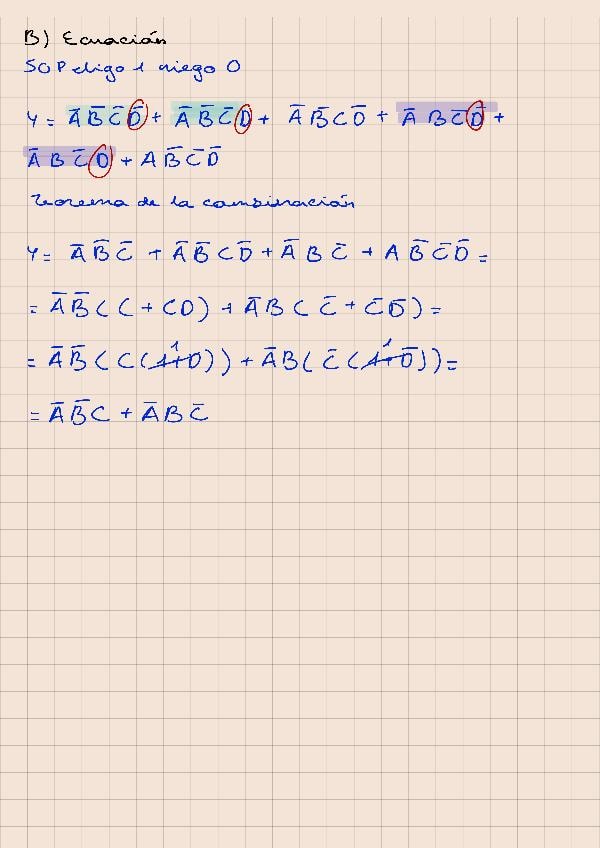 B) Ecuación
SOP eligo 1 niego 0
Y = A̅ B̅ C̅ D̅ + A̅ B̅ C̅ D + A̅ B̅ C D̅ + A̅ B C̅ D̅ +
A̅ B C̅ D + A B̅ C̅ D̅
Teorema de la combinación
Y = A̅ B̅ C̅ + A̅ B̅ C D̅ + A̅ B C̅ + A B̅ C̅ D̅ =
= A̅ B̅ ( C + C D ) + A̅ B ( C̅ + C̅ D̅ ) =
= A̅ B̅ ( C ( 1 + D ) 1 ) + A̅ B ( C̅ ( 1 + D̅ ) 1 ) =
= A̅ B̅ C + A̅ B C̅